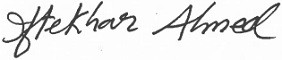 Iftekhar Ahmed